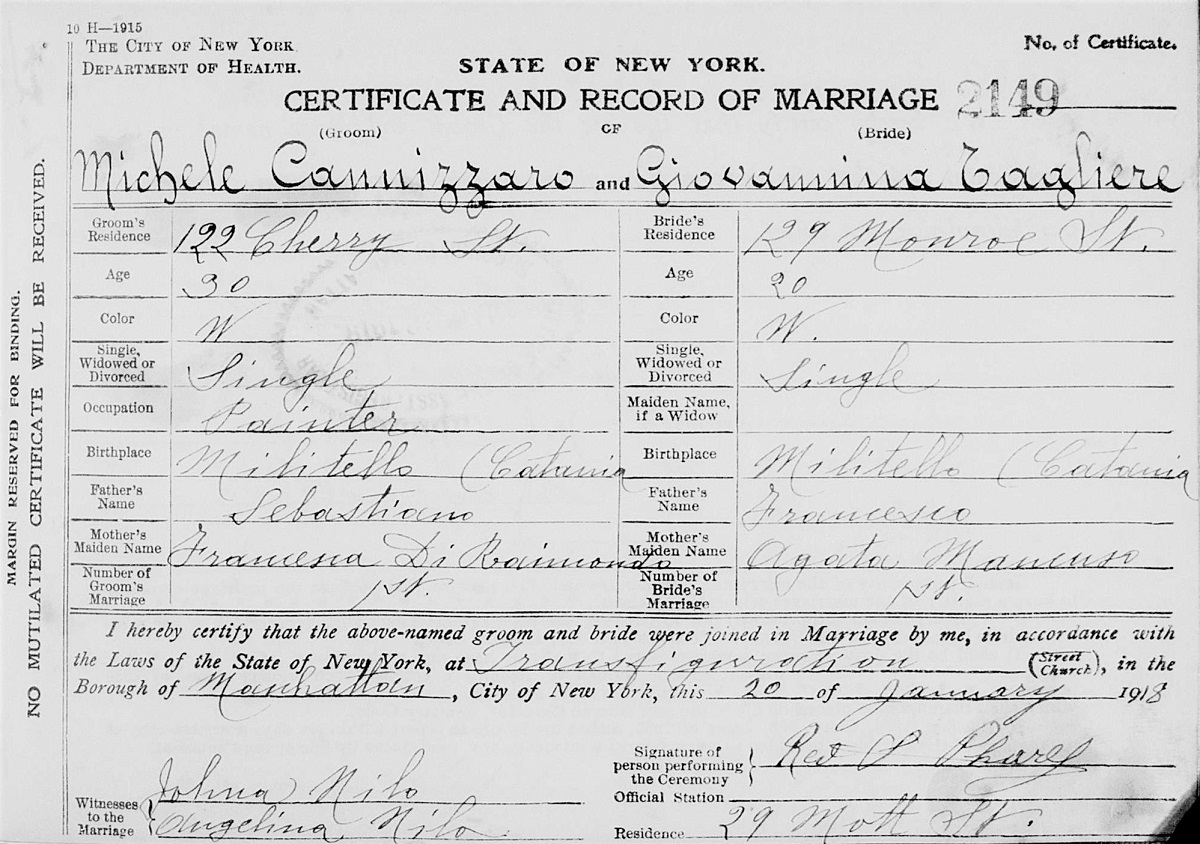 10 H—1915
THE CITY OF NEW YORK
DEPARTMENT OF HEALTH.
No. of Certificate.
STATE OF NEW YORK.
CERTIFICATE AND RECORD OF MARRIAGE 2149
(Groom) OF (Bride)
Michele Cannizzaro and Giovannina Tagliere
Groom's Residence 122 Cherry St. Bride's Residence 129 Monroe St.
Age 30 Age 20
Color W Color W.
Single, Widowed or Divorced Single Single, Widowed or Divorced Single
Occupation Painter Maiden Name, if a Widow
Birthplace Militello (Catania Birthplace Militello (Catania
Father's Name Sebastiano Father's Name Francesco
Mother's Maiden Name Francesca Di Raimondo Mother's Maiden Name Agata Mancuso
Number of Groom's Marriage 1st. Number of Bride's Marriage 1st.
I hereby certify that the above-named groom and bride were joined in Marriage by me, in accordance with
the Laws of the State of New York, at Transfiguration (Street Church), in the
Borough of Manhattan, City of New York, this 20 of January 1918
Signature of person performing the Ceremony Rev
Witnesses to the Marriage Johna Nilo
Angelina Nilo
Official Station
Residence 29 Mott St.
MARGIN RESERVED FOR BINDING.
NO MUTILATED CERTIFICATE WILL BE RECEIVED.